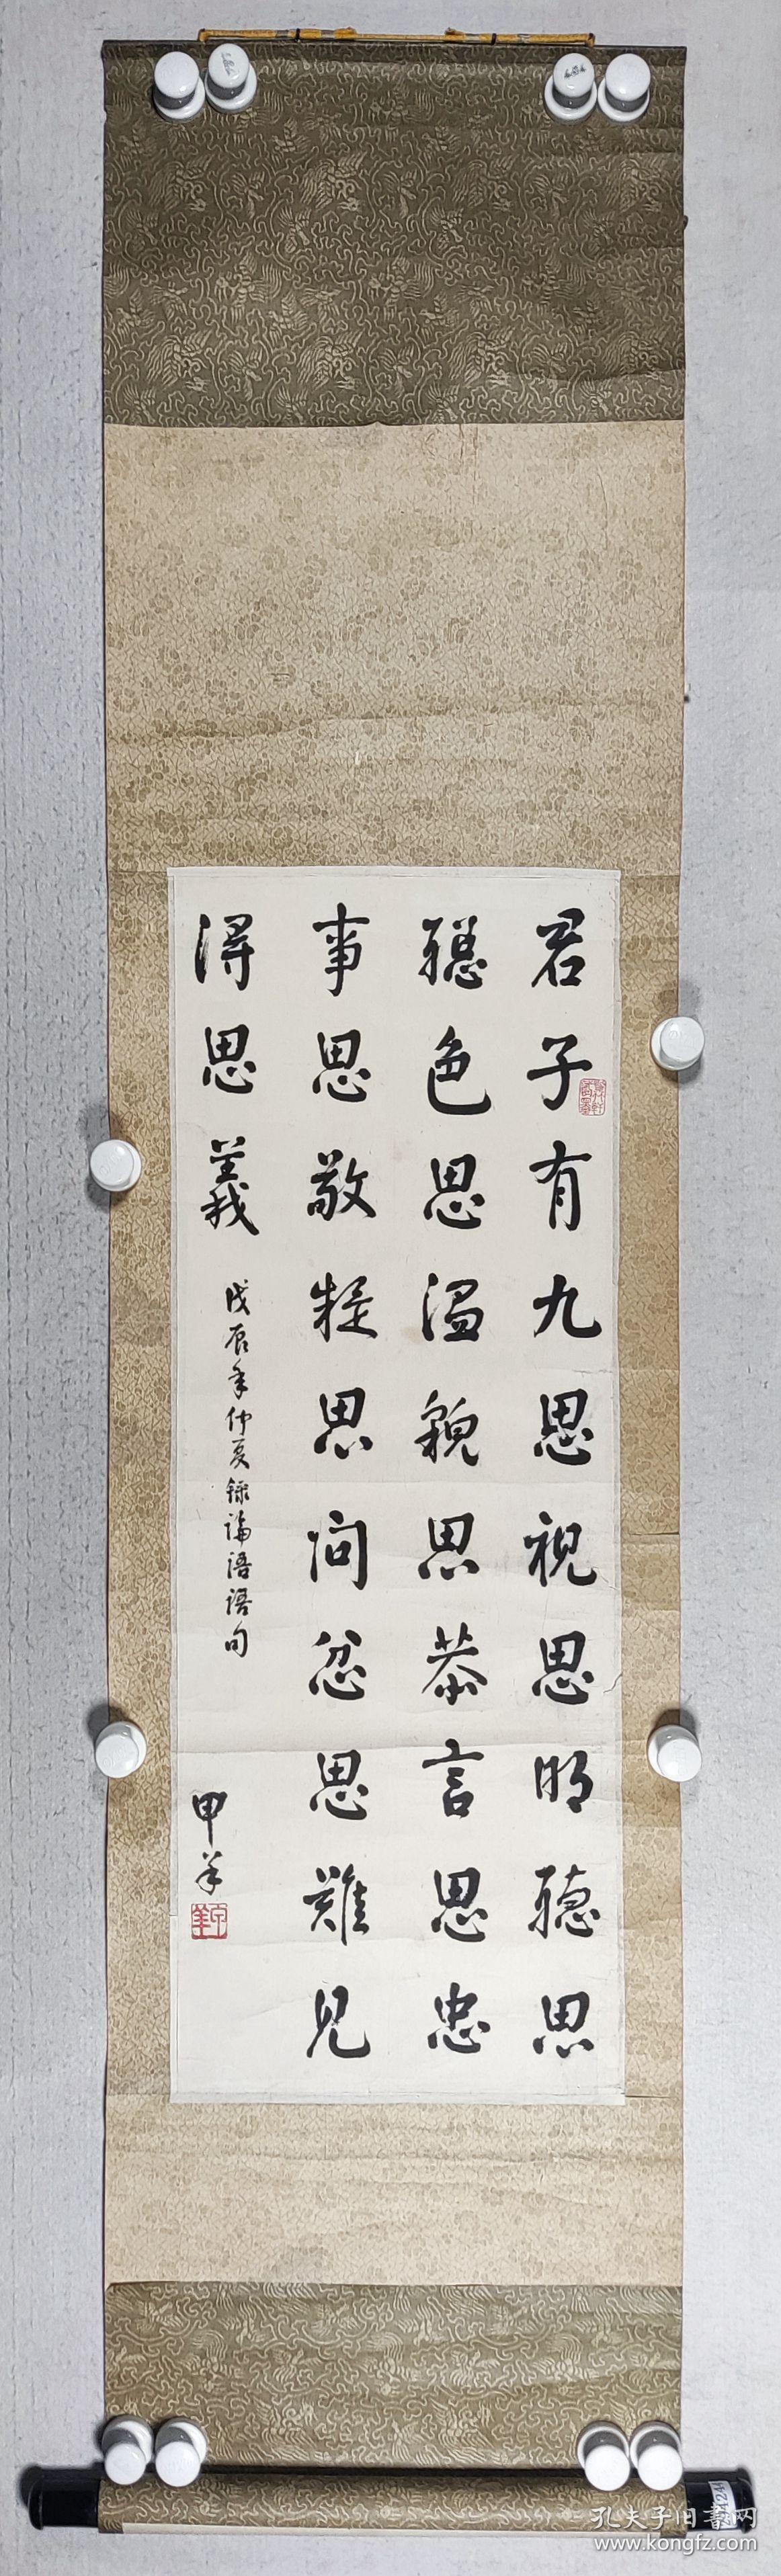 君子有九思視思明聽思
聰色思溫貌思恭言思忠
事思敬疑思问忿思難見
得思義
戊辰年仲夏錄論語語句
甲羊
孔夫子旧書网
www.kongfz.com